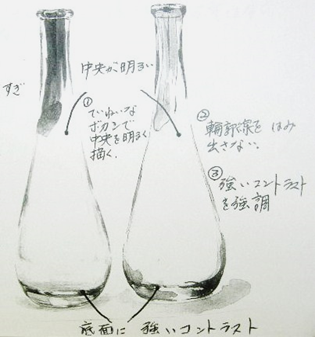 すぎ
中央が明るい
①
ていねいな
ボカシで
中央を明るく
描く.
②
輪郭線を はみ
出さない.
③
強いコントラスト
を強調
底面に 強いコントラスト